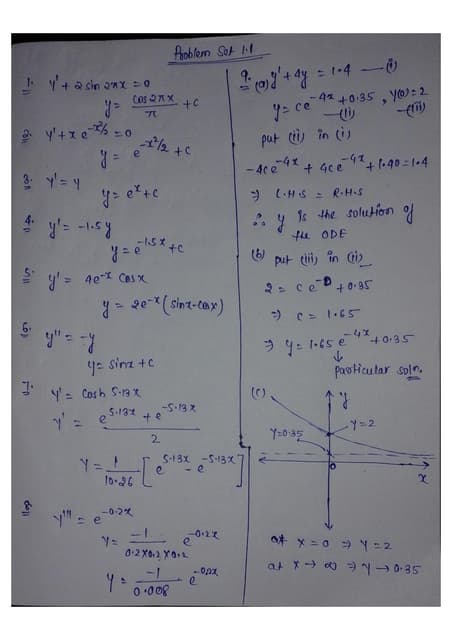 Problem Set 1.1
1. y' + 2 sin 2πx = 0
y = cos 2πx / π + c
2. y' + x e^{-x²/2} = 0
y = e^{-x²/2} + c
3. y' = y
y = e^x + c
4. y' = -1.5y
y = e^{-1.5x} + c
5. y' = 4e^{-x} cos x
y = 2e^{-x} (sin x - cos x)
6. y'' = -y
y = sin x + c
7. y' = cosh 5.13x
y' = (e^{5.13x} + e^{-5.13x}) / 2
y = 1/10.26 [e^{5.13x} - e^{-5.13x}]
8. y''' = e^{-0.2x}
y = -1 / (0.2×0.2×0.2) e^{-0.2x}
y = -1 / 0.008 e^{-0.2x}
9. (a) y' + 4y = 1.4 — (i)
y = ce^{-4x} + 0.35 —(ii), y(0) = 2 —(iii)
put (ii) in (i)
-4ce^{-4x} + 4ce^{-4x} + 1.40 = 1.4
⇒ L.H.S = R.H.S
∴ y is the solution of
the ODE
(b) put (iii) in (ii)
2 = c e^{-0} + 0.35
⇒ c = 1.65
⇒ y = 1.65 e^{-4x} + 0.35
↓
particular soln.
(c)
y
y=2
y=0.35
0
x
at x = 0 ⇒ y = 2
at x → ∞ ⇒ y → 0.35